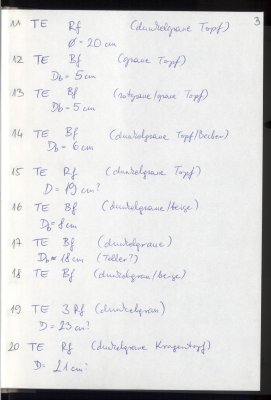 3
11 TE Rf (dunkelgraue Topf)
Ø = 20 cm
12 TE Bf (graue Topf)
Db = 5 cm
13 TE Bf (rotgraue/graue Topf)
Db = 5 cm
14 TE Bf (dunkelgraue Topf/Becher)
Db = 6 cm
15 TE Rf (dunkelgraue Topf)
D = 19 cm?
16 TE Bf (dunkelgraue/beige)
Db = 8 cm
17 TE Bf (dunkelgraue)
Db = 18 cm (Teller?)
18 TE Bf (dunkelgrau/beige)
19 TE 3 Rf (dunkelgrau)
D = 23 cm?
20 TE Rf (dunkelgraue Kragentopf)
D = 21 cm?